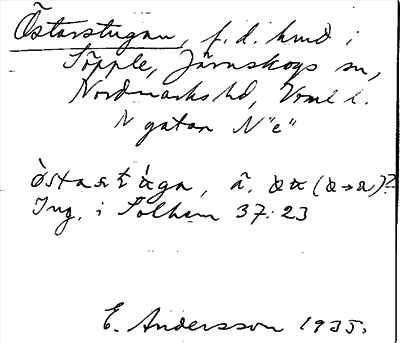 Östarstugan, f.d. hmd i
Töpple, Järnskogs sn,
Nordmarks hd, Vrml l.
N gatan N "e"
östa
Ing. i Solhem 37:23
E. Andersson 1935.